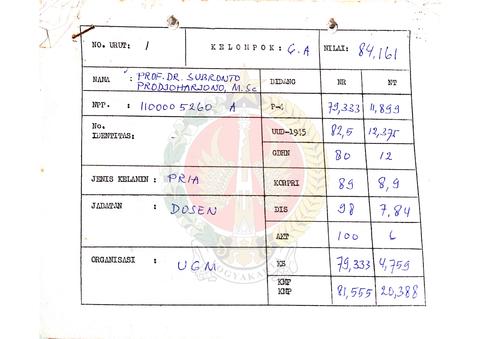 NO. URUT: / KELOMPOK: G.A NILAI: 84,161
NAMA : PROF. DR. SUBRONTO
PRODJOHARJONO, M.Sc
BIDANG NR NT
NPP. : 110000 5260 A P-4 79,333 11,899
No.
IDENTITAS: - UUD-1945 82,5 12,375
GBHN 80 12
JENIS KELAMIN : PRIA KORPRI 89 8,9
JABATAN : DOSEN DIS 98 7,84
AKT 100 6
ORGANISASI : UGM KB 79,333 4,759
KMP
KNP 81,555 20,388
YOGYAKARTA